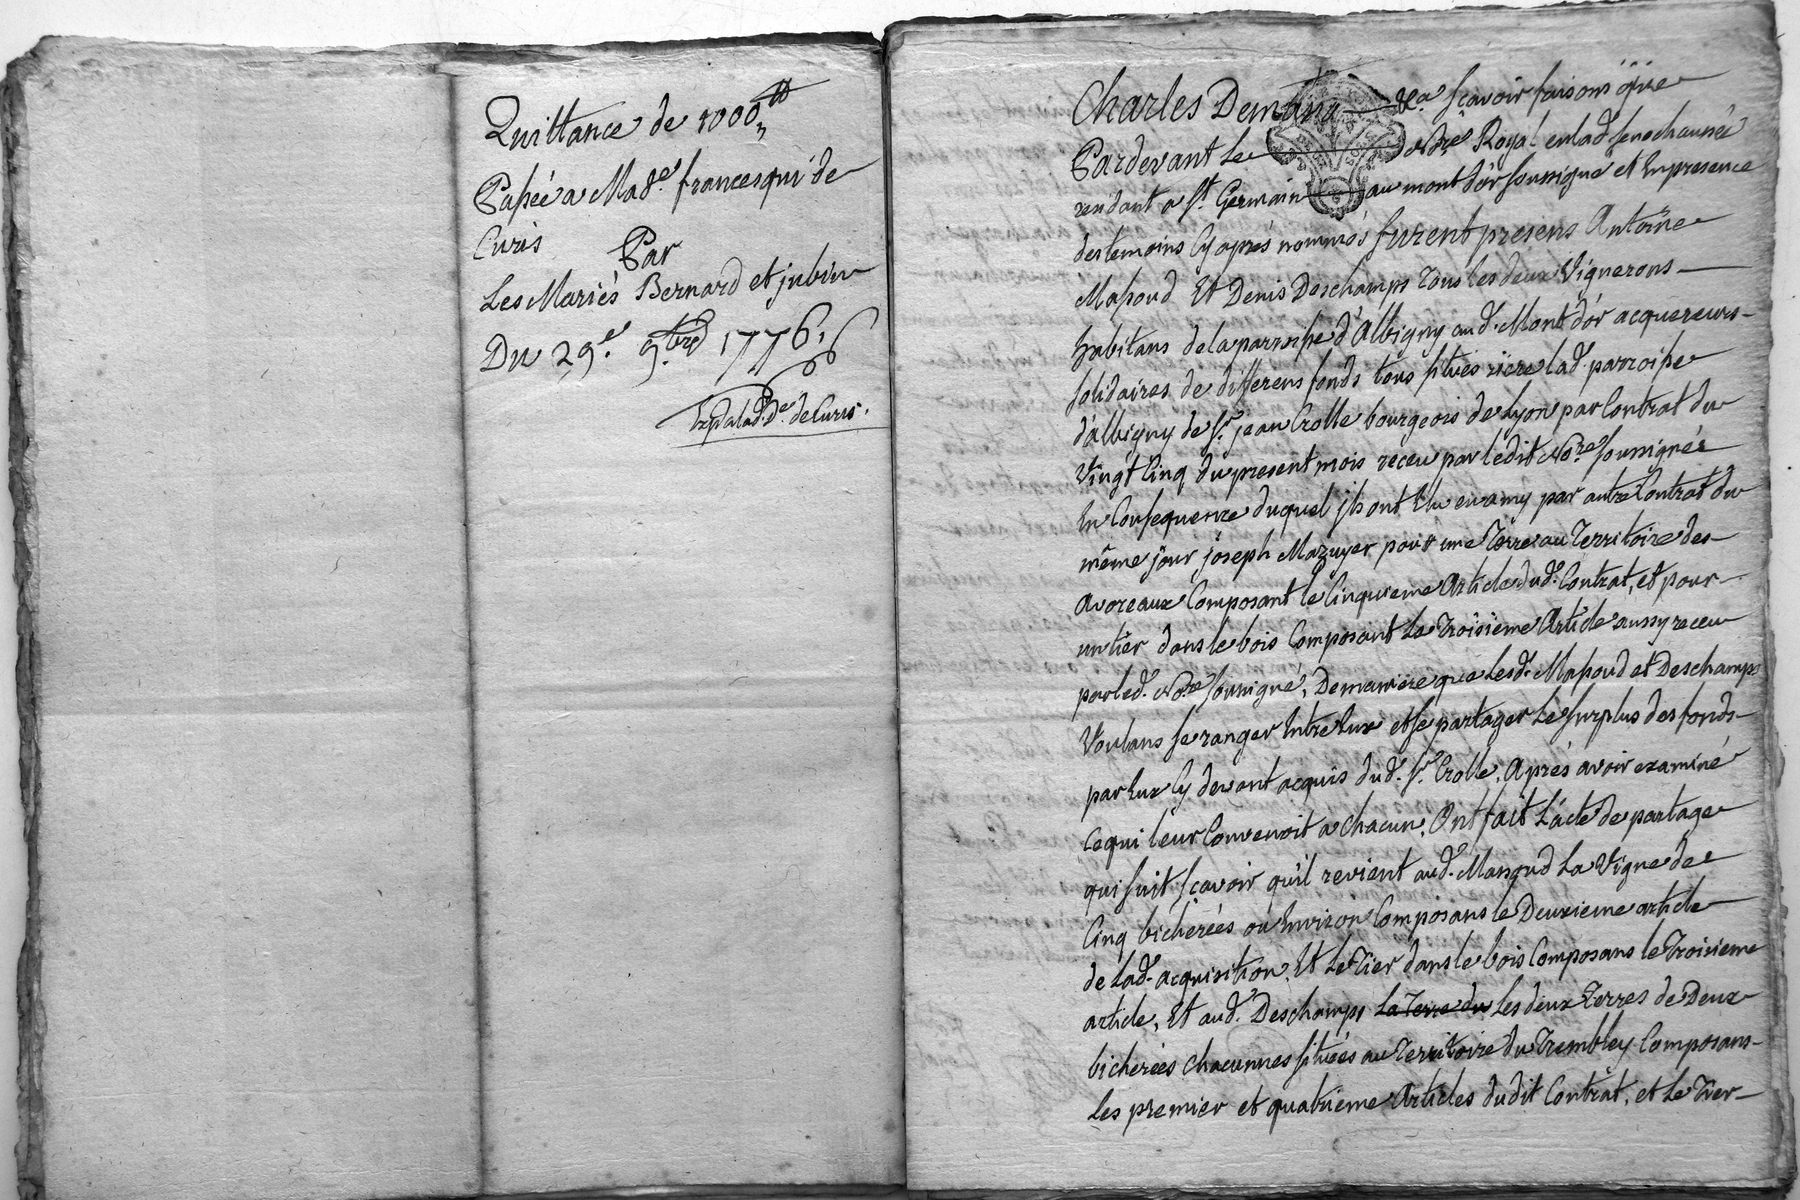 Quittance de 1000 ₶
Passée a Mad.e francesqui de
Curis
Par
Les Mariés Bernard et jubin
Du 29.e 9.bre 1776.
Exp.d a lad. D.e de Curis.
Charles Demans &a. scavoir faisons que
Pardevant Le No.re Royal en lad. senechaussée
residant a St. Germain au mont d'or soussigné et En presence
des temoins Cy aprés nommés furent presens Antoine
Massoud Et Denis Deschamps Tous les deux Vignerons
habitans de la parroisse d'Albigny aud. Mont d'or acquereurs
solidaires de differens fonds tous situés riere lad. parroisse
d'albigny de Sr. jean Crolle bourgeois de Lyon par Contrat du
Vingt Cinq du present mois receu par ledit No.re soussigné
En Consequence duquel ils ont Elu en amy par autre Contrat du
même jour joseph Mazuyer pour une Terre au Territoire des
avoreaux Composant le Cinquieme Article dud. Contrat, et pour
un tier dans le bois Composant Le Troisième Article aussy receu
par led. No.re soussigné, De maniere que Lesd. Massoud et Deschamps
Voulans se ranger Entre Eux et se partager Le surplus des fonds
par Eux Cy devant acquis dud. Sr. Crolle, Aprés avoir examiné
Ce qui leur Convenoit a Chacun, Ont fait L'acte de partage
qui suit, sçavoir qu'il revient aud. Massoud La Vigne de
Cinq bicherées ou Environ Composans le Deuxieme article
de Lad. acquisition, Et Le Tier dans le bois Composans le Troisieme
article, Et aud. Deschamps La Terre du Les deux Terres de Deux
bicherées chacunnes situées au Territoire du Trembley Composans
Les premier et quatrieme Articles dudit Contrat, et Le Tier